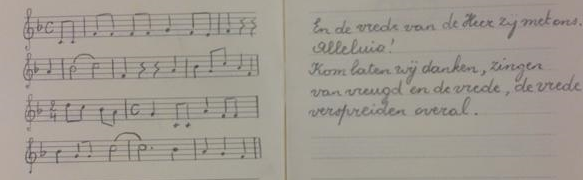 En de vrede van de Heer zij met ons.
Alleluia!
Kom laten wij danken, zingen
van vreugd en de vrede, de vrede
verspreiden overal.